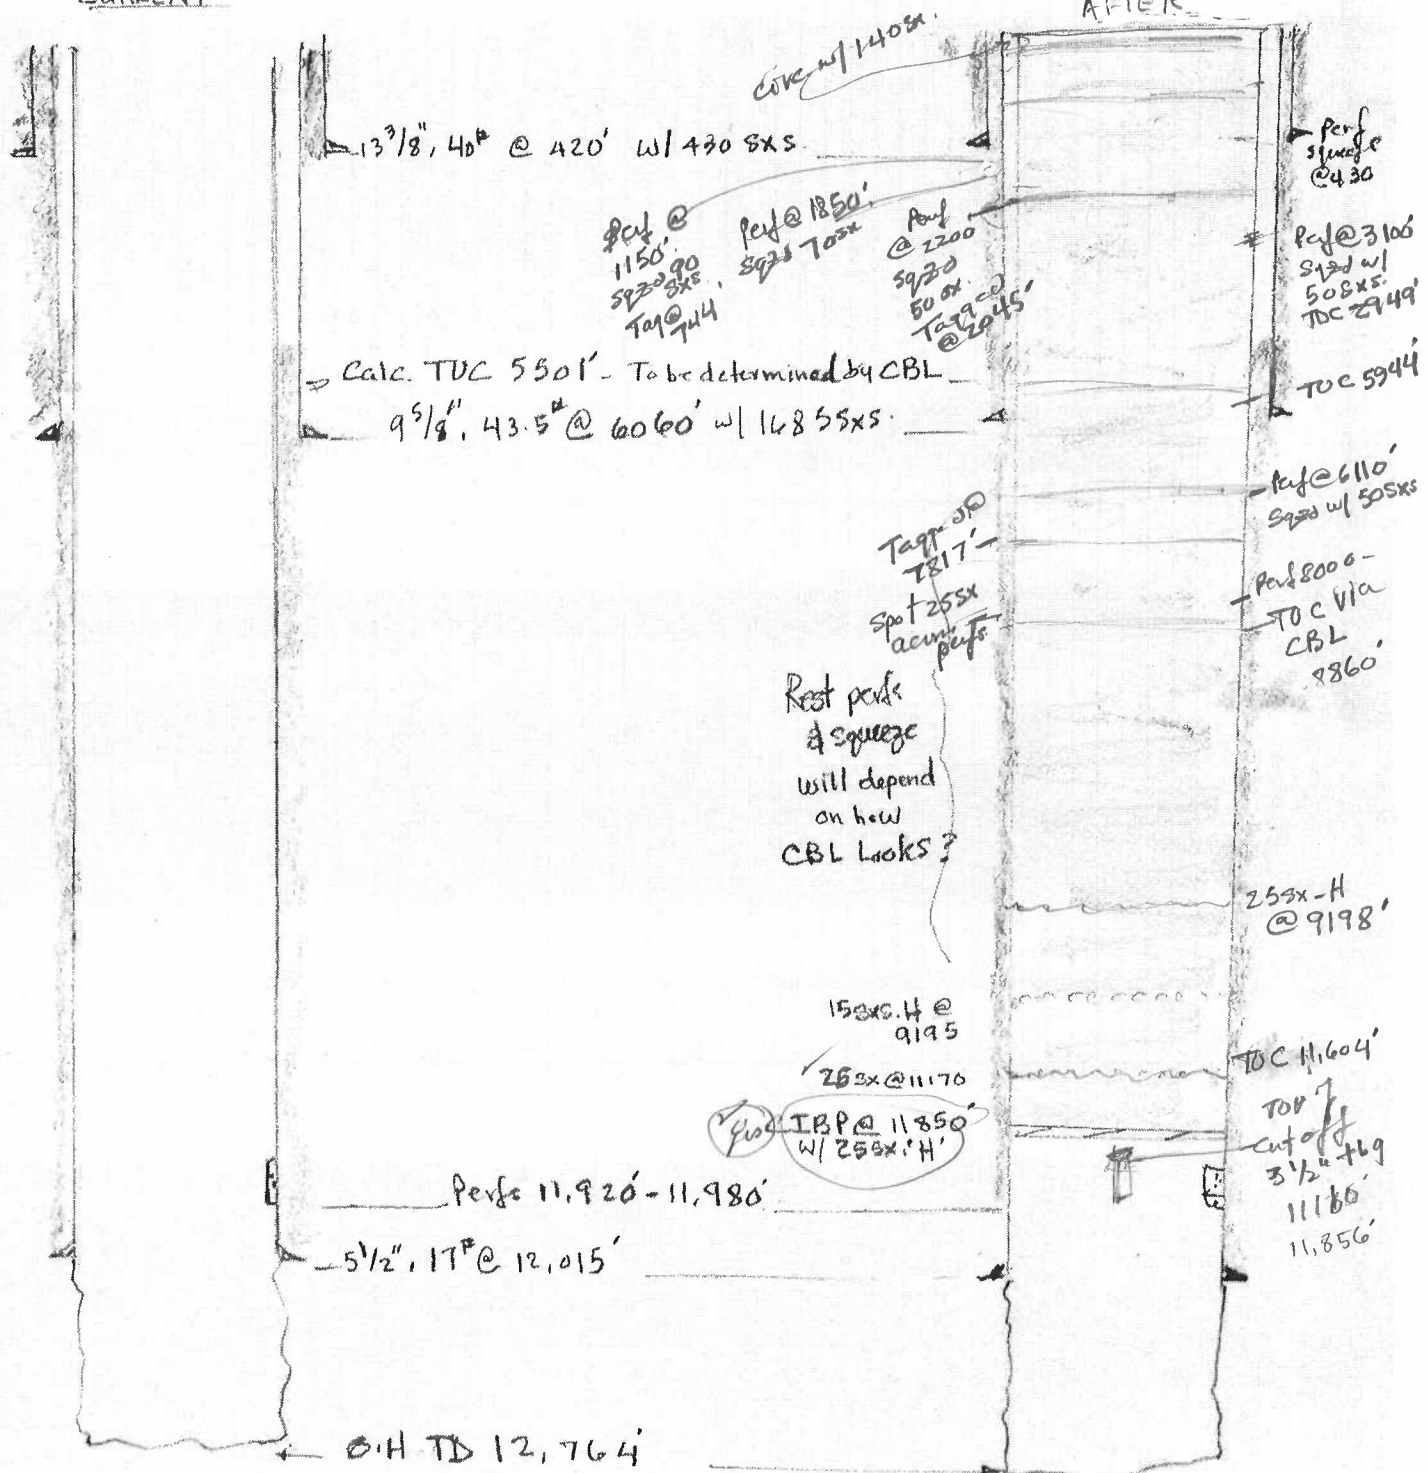 CURRENT
AFTER
w/ 140sx.
13 3/8", 40# @ 420' w/ 430 sxs.
Perf
squeeze
@430
Perf @
1150'.
Sqzd 90
sxs.
Tag@
744
Perf @ 1850'.
Sqzd 70sx
Perf
@ 2200
Sqzd
50 sx.
Tagged
@ 2045'
Perf@3100'
Sqzd w/
50sxs.
TOC 2949'
Calc. TOC 5501' - To be determined by CBL
TOC 5944'
9 5/8", 43.5# @ 6060' w/ 1685sxs.
Perf@6110'
Sqzd w/ 50sxs
Tagged @
7817'
Spot 25sx
perfs.
Perf 8000 -
TOC via
CBL
8860'
Rest perfs
& squeeze
will depend
on how
CBL Looks?
25sx-H
@ 9198'
15sxs.H @
9195
25sx @11170
TOC 11,604'
IBP@ 11850'
W/ 25sx.'H'
TOP of
Cut off
3 1/2" tbg
11,856'
Perfs 11,920'-11,980'
5 1/2", 17# @ 12,015'
O.H TD 12,764'